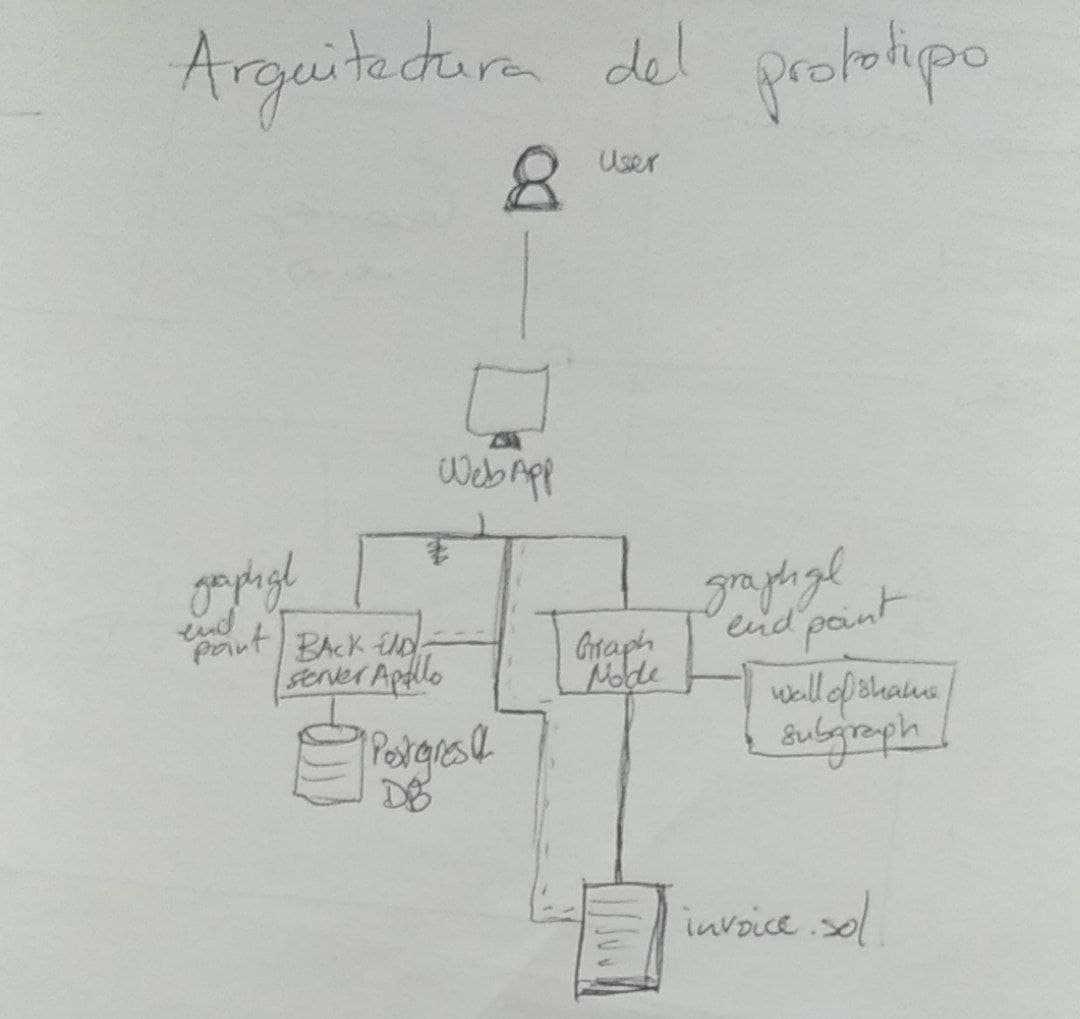 Arquitectura del prototipo
user
WebApp
graphql
end
point
BAck-END
server Apollo
PostgresQL
DB
Graph
Node
graphql
end point
wallofshame
subgraph
invoice.sol